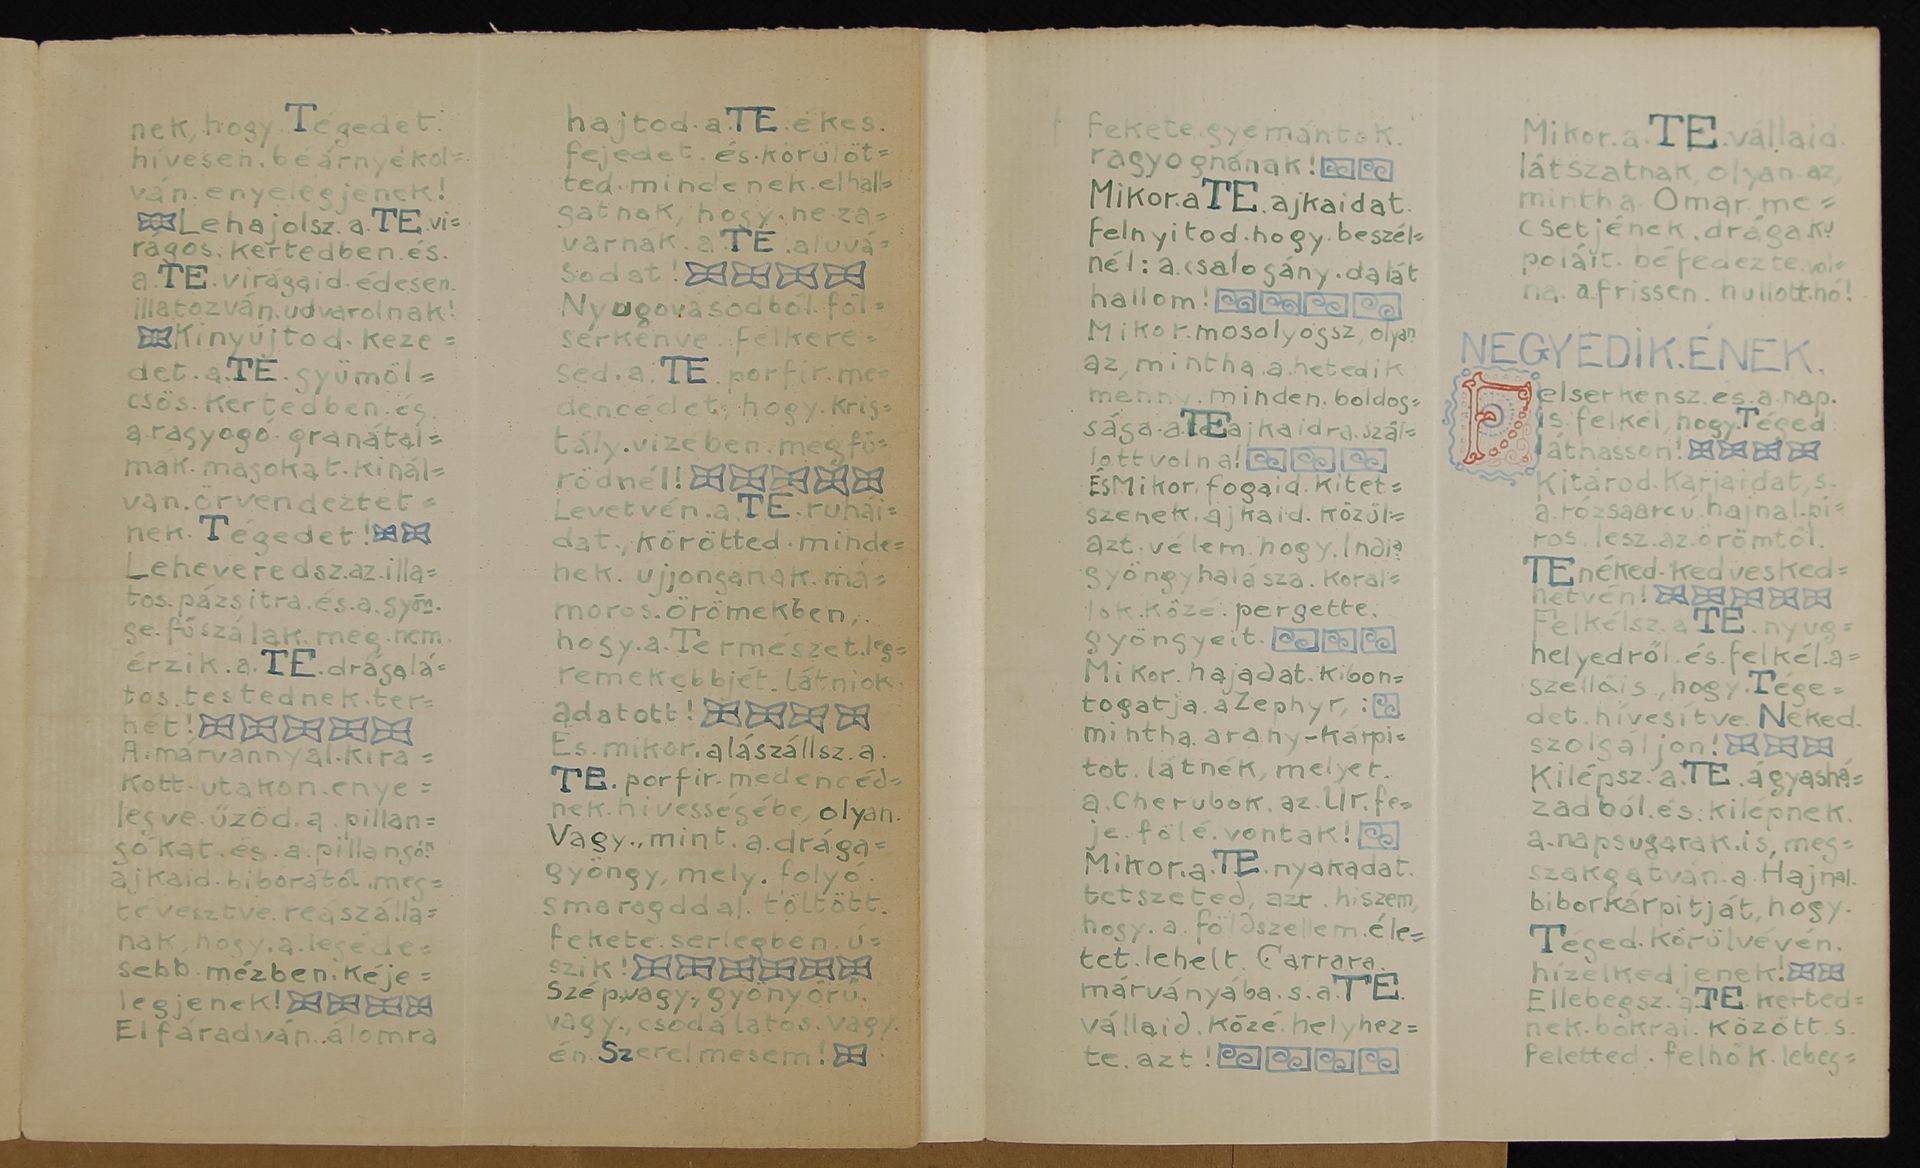 nek, hogy. Tégedet.
hívesen. beárnyékol=
ván. enyelegjenek!
Lehajolsz. a. TE. vi=
rágos. kertedben. és.
a. TE. virágaid. édesen.
illatozván. udvarolnak!
Kinyújtod. keze=
det. a. TE. gyümöl=
csös. kertedben. és.
a. ragyogó. gránátal=
mák. magokat. kinál=
ván. örvendeztet=
nek. Tégedet!
Leheveredsz. az. illa=
tos. pázsitra. és. a. gyön.
ge. fűszálak. meg. nem.
érzik. a. TE. drágalá=
tos. testednek. ter=
hét!
A. márvánnyal. kira=
kott. utakon. enye=
legve. űzöd. a. pillan=
gókat. és. a. pillangó.
ajkaid. biborától. meg=
tévesztve. reászálla=
nak, hogy. a. legéde=
sebb. mézben. kéje=
legjenek!
Elfáradván. álomra
hajtod. a. TE. ékes.
fejedet. és. körülöt=
ted. mindenek. elhall=
gatnak, hogy. ne. za=
varnák. a. TE. aluvá=
sodat!
Nyugovásodból. föl=
serkenve. felkere=
sed. a. TE. porfir. me=
dencédet, hogy. kris=
tály. vizében. megfü=
rödnél!
Levetvén. a. TE. ruhái=
dat., körötted. minde=
nek. ujjonganak. má=
moros. örömekben,.
hogy. a. Természet. leg=
remekebbjét. látniok.
adatott!
És. mikor. alászállsz. a.
TE. porfir. medencéd=
nek. hívességébe, olyan.
Vagy., mint. a. drága=
gyöngy, mely. folyó.
smaragddal. töltött.
fekete. serlegben. ú=
szik!
Szép. vagy., gyönyörű.
vagy., csodálatos. vagy.
én. Szerelmesem!
fekete. gyémántok.
ragyognának!
Mikor. a TE. ajkaidat.
felnyitod. hogy. beszél=
nél: a. csalogány. dalát
hallom!
Mikor. mosolyogsz, olyan
az, mintha. a. hetedik
menny. minden. boldog=
sága. a. TE ajkaidra. szál=
lott volna!
És Mikor. fogaid. kitet=
szenek. ajkaid. közül=
azt. vélem. hogy. India
gyöngyhalásza. koral=
lok. közé. pergette.
gyöngyeit.
Mikor. hajadat. kibon=
togatja. a Zephyr, :
mintha. arany-kárpi=
tot. látnék, melyet.
a. Cherubok. az. Ur. fe=
je. fölé. vontak!
Mikor. a. TE. nyakadat.
tetszeted, azt. hiszem,
hogy. a. földszellem. éle=
tet. lehelt. Carrara.
márványába. s. a. TE.
vállaid. közé. helyhez=
te. azt!
Mikor. a. TE. vállaid.
látszatnak, olyan. az,
mintha. Omar. me=
csetjének. drága. ku
poláit. béfedezte. vol=
na. a. frissen. hullott. hó!
NEGYEDIK. ÉNEK.
Felserkensz. és. a. nap.
is. felkél, hogy. Téged
láthasson!
Kitárod. karjaidat, s.
a. rózsaarcú. hajnal. pi=
ros. lesz. az. örömtől.
TEnéked. kedvesked=
hetvén!
Felkélsz. a TE. nyug=
helyedről. és. felkél. a=
szelláis., hogy. Tége=
det. hívesítve. Néked.
szolgáljon!
Kilépsz. a. TE. ágyashá=
zadból. és. kilépnek.
a. napsugarak. is, meg=
szakgatván. a. Hajnal.
biborkárpitját, hogy.
Téged. körülvévén.
hízelkedjenek!
Ellebegsz. a TE. kerted=
nek. bokrai. között. s.
feletted. felhők. lebeg=